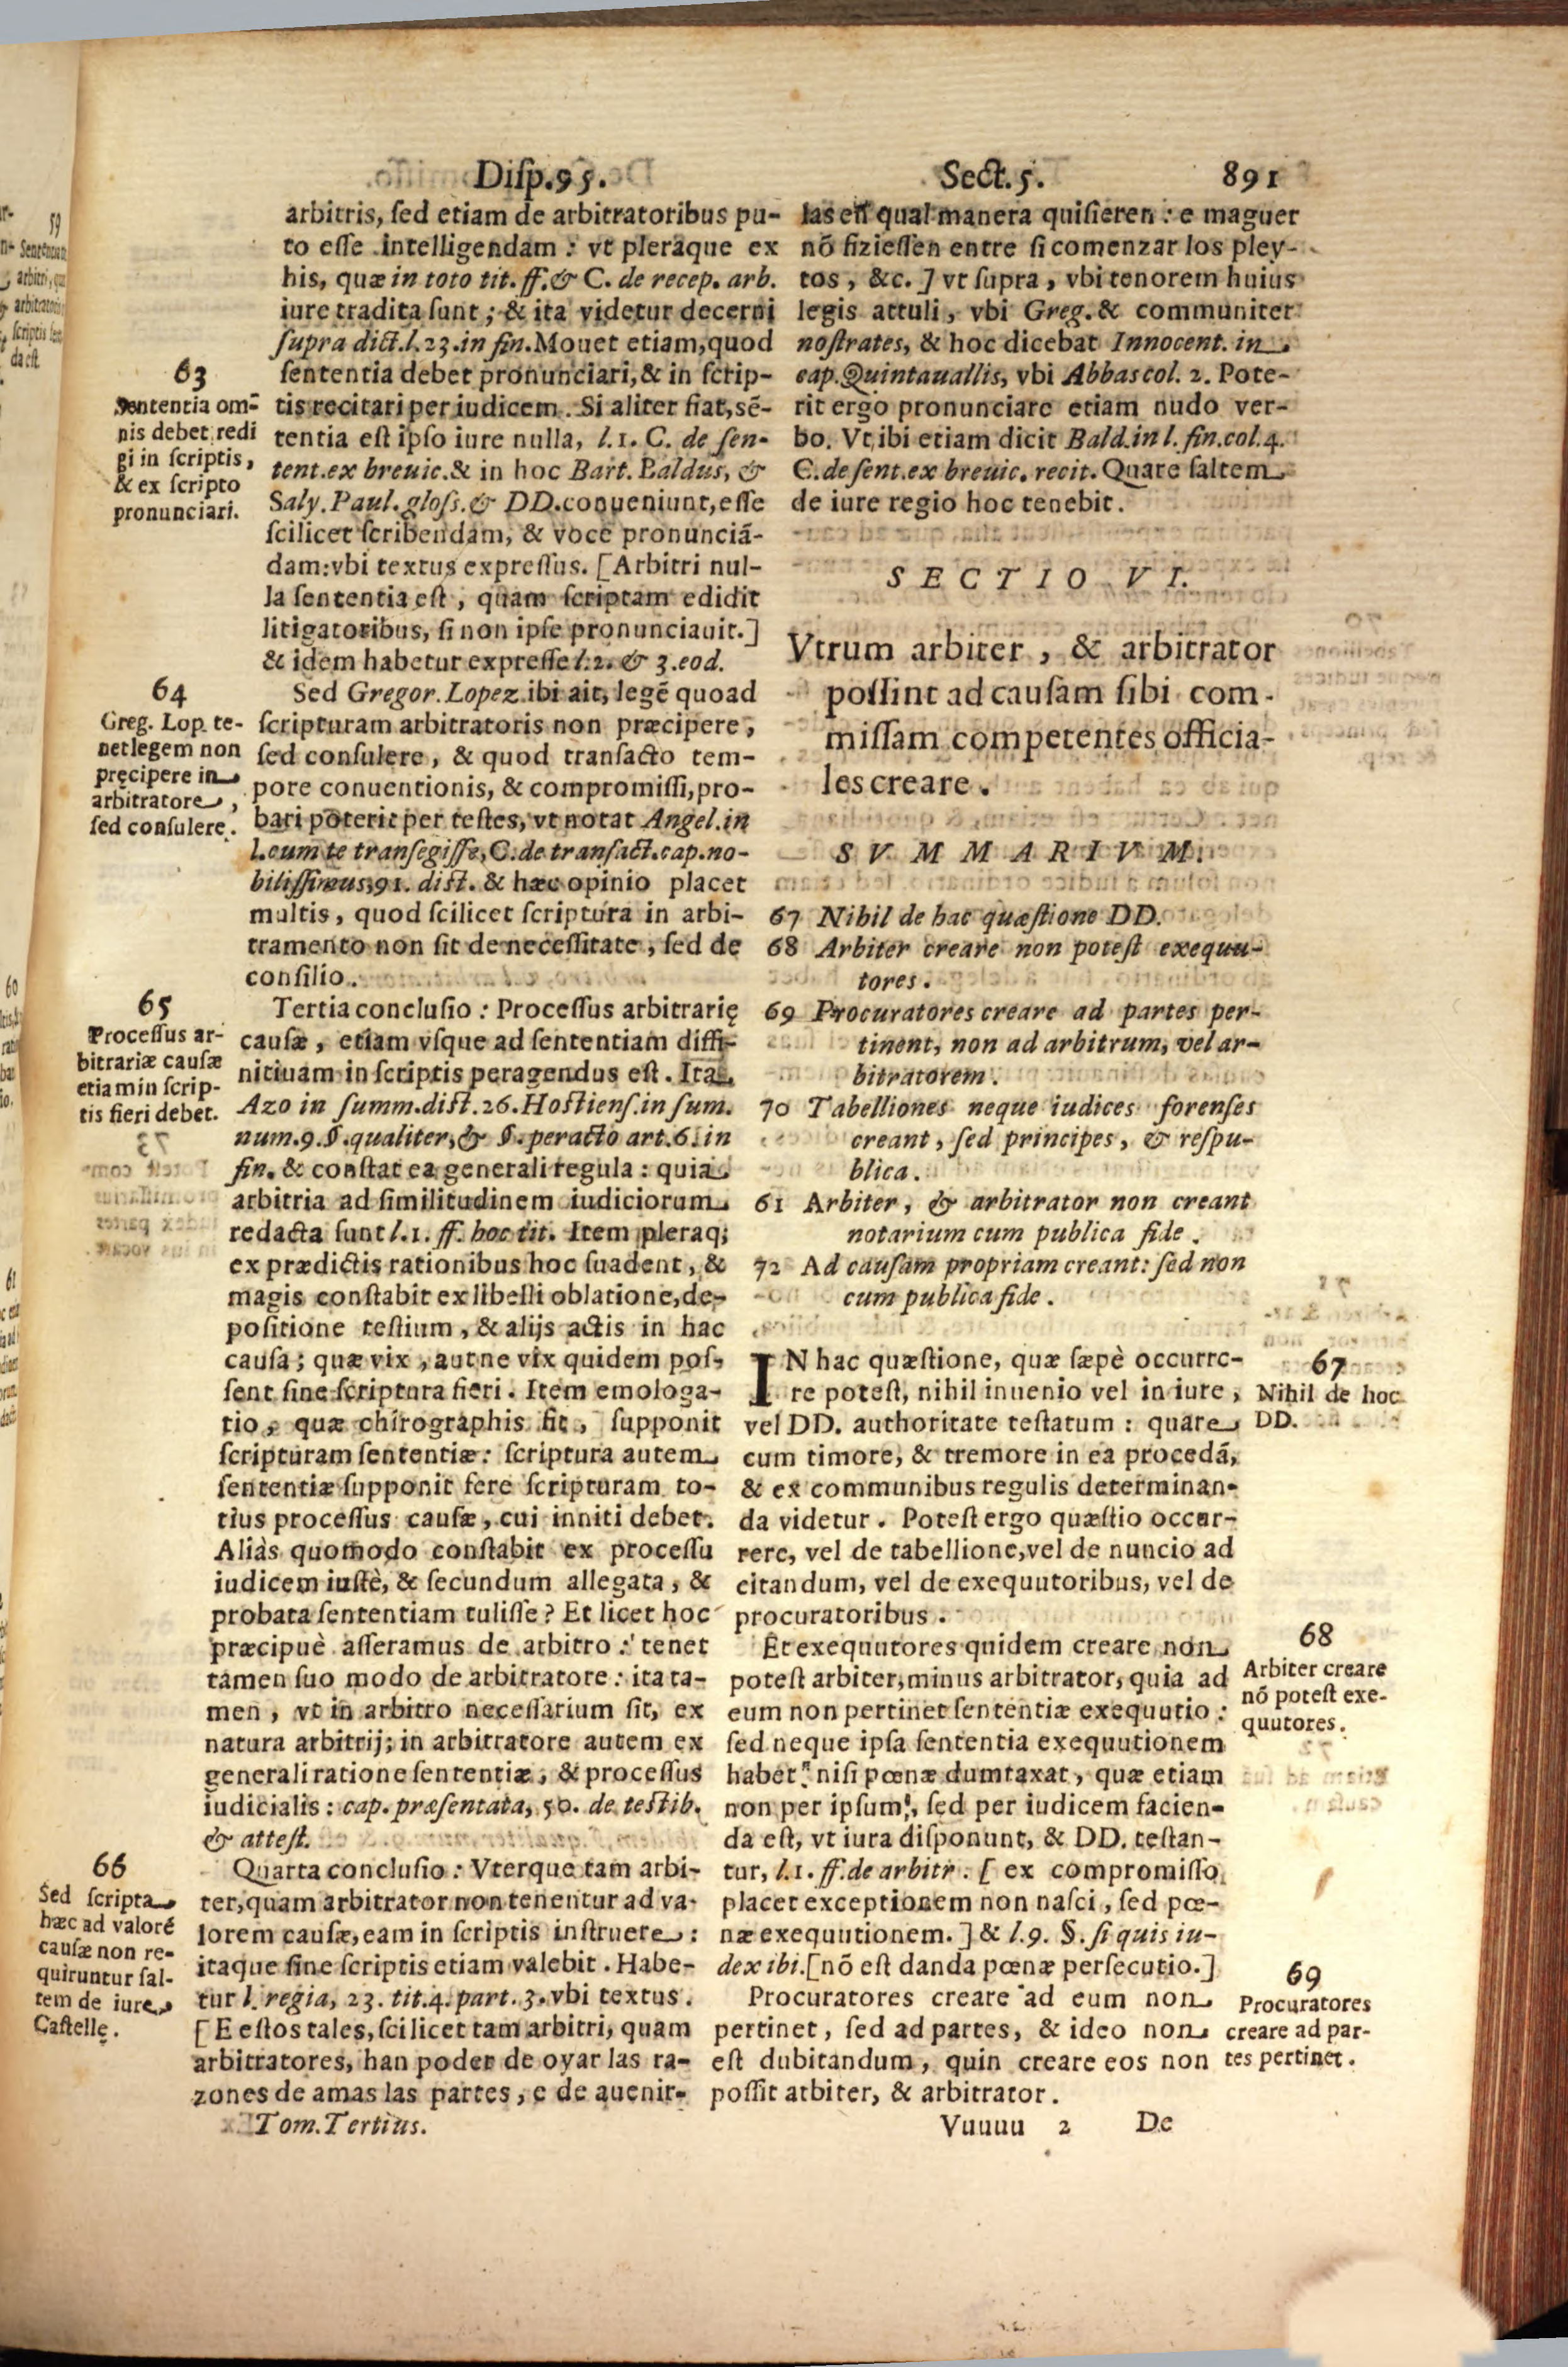 Disp.95. Sect.5. 891
arbitris, sed etiam de arbitratoribus pu-
to esse intelligendam : vt pleraque ex
his, quæ in toto tit. ff. & C. de recep. arb.
iure tradita sunt ; & ita videtur decerni
supra dict.l.23.in fin. Mouet etiam, quod
63
sententia debet pronunciari, & in scrip-
tis recitari per iudicem. Si aliter fiat, sē-
tentia est ipso iure nulla, l.1. C. de sen-
tent.ex breuic. & in hoc Bart. Baldus, &
Saly. Paul. gloss. & DD. conueniunt, esse
Sententia om-
nis debet redi
gi in scriptis,
& ex scripto
pronunciari.
scilicet scribendam, & voce pronunciā-
dam: vbi textus expressus. [Arbitri nul-
la sententia est , quam scriptam edidit
litigatoribus, si non ipse pronunciauit.]
& idem habetur expresse l.2. & 3.eod.
64
Greg. Lop. te-
net legem non
pręcipere in
arbitratore ,
sed consulere.
Sed Gregor. Lopez ibi ait, legē quoad
scripturam arbitratoris non præcipere ,
sed consulere , & quod transacto tem-
pore conuentionis, & compromissi, pro-
bari poterit per testes, vt notat Angel. in
l.cum te transegisse, C. de transact. cap. no-
bilissimus, 91. dist. & hæc opinio placet
multis , quod scilicet scriptura in arbi-
tramento non sit de necessitate , sed de
consilio.
65
Processus ar-
bitrariæ causæ
etiam in scrip-
tis fieri debet.
Tertia conclusio : Processus arbitrarię
causæ , etiam vsque ad sententiam diffi-
nitiuam in scriptis peragendus est. Ita
Azo in summ. dist. 26. Hostiens. in sum.
num.9. §. qualiter, & §. peracto art.6. in
fin. & constat ea generali regula : quia
arbitria ad similitudinem iudiciorum
redacta sunt l.1. ff. hoc tit. Item pleraq;
ex prædictis rationibus hoc suadent , &
magis constabit ex libelli oblatione, de-
positione testium , & alijs actis in hac
causa ; quæ vix , aut ne vix quidem pos-
sent sine scriptura fieri. Item emologa-
tio , quæ chirographis fit , supponit
scripturam sententiæ : scriptura autem
sententiæ supponit fere scripturam to-
tius processus causæ , cui inniti debet.
Aliàs quomodo constabit ex processu
iudicem iustè, & secundum allegata , &
probata sententiam tulisse ? Et licet hoc
præcipuè asseramus de arbitro : tenet
tamen suo modo de arbitratore : ita ta-
men , vt in arbitro necessarium sit, ex
natura arbitrij; in arbitratore autem ex
generali ratione sententiæ , & processus
iudicialis : cap. præsentata, 50. de testib.
& attest.
66
Sed scripta
hæc ad valorē
causæ non re-
quiruntur sal-
tem de iure
Castellę.
Quarta conclusio : Vterque tam arbi-
ter, quam arbitrator non tenentur ad va-
lorem causæ, eam in scriptis instruere :
itaque sine scriptis etiam valebit. Habe-
tur l. regia, 23. tit.4. part. 3. vbi textus.
[E estos tales, scilicet tam arbitri, quam
arbitratores, han poder de oyar las ra-
zones de amas las partes , e de auenir-
Tom. Tertius.
las en qual manera quisieren : e maguer
nō fiziessen entre si comenzar los pley-
tos , &c. ] vt supra , vbi tenorem huius
legis attuli , vbi Greg. & communiter
nostrates, & hoc dicebat Innocent. in
cap. Quintauallis, vbi Abbas col. 2. Pote-
rit ergo pronunciare etiam nudo ver-
bo. Vt ibi etiam dicit Bald. in l. fin. col. 4.
C. de sent. ex breuic. recit. Quare saltem
de iure regio hoc tenebit.
SECTIO VI.
Vtrum arbiter , & arbitrator
possint ad causam sibi com-
missam competentes officia-
les creare.
SVMMARIVM.
67 Nihil de hac quæstione DD.
68 Arbiter creare non potest exequu-
tores.
69 Procuratores creare ad partes per-
tinent, non ad arbitrum, vel ar-
bitratorem.
70 Tabelliones neque iudices forenses
creant , sed principes , & respu-
blica.
61 Arbiter , & arbitrator non creant
notarium cum publica fide .
72 Ad causam propriam creant: sed non
cum publica fide .
IN hac quæstione, quæ sæpè occurre-
re potest, nihil inuenio vel in iure ,
vel DD. authoritate testatum : quare
cum timore, & tremore in ea procedā,
& ex communibus regulis determinan-
da videtur . Potest ergo quæstio occur-
rere, vel de tabellione, vel de nuncio ad
citandum, vel de exequutoribus, vel de
procuratoribus .
67
Nihil de hoc
DD.
Et exequutores quidem creare non
potest arbiter, minus arbitrator, quia ad
eum non pertinet sententiæ exequutio :
sed neque ipsa sententia exequutionem
habet: nisi pœnæ dumtaxat , quæ etiam
non per ipsum, sed per iudicem facien-
da est, vt iura disponunt, & DD. testan-
tur, l.1. ff. de arbitr. [ ex compromisso
placet exceptionem non nasci , sed pœ-
næ exequutionem. ] & l.9. §. si quis iu-
dex ibi. [nō est danda pœnæ persecutio.]
68
Arbiter creare
nō potest exe-
quutores.
Procuratores creare ad eum non
pertinet , sed ad partes, & ideo non
est dubitandum , quin creare eos non
possit arbiter, & arbitrator .
69
Procuratores
creare ad par-
tes pertinet.
Vuuuu 2 De